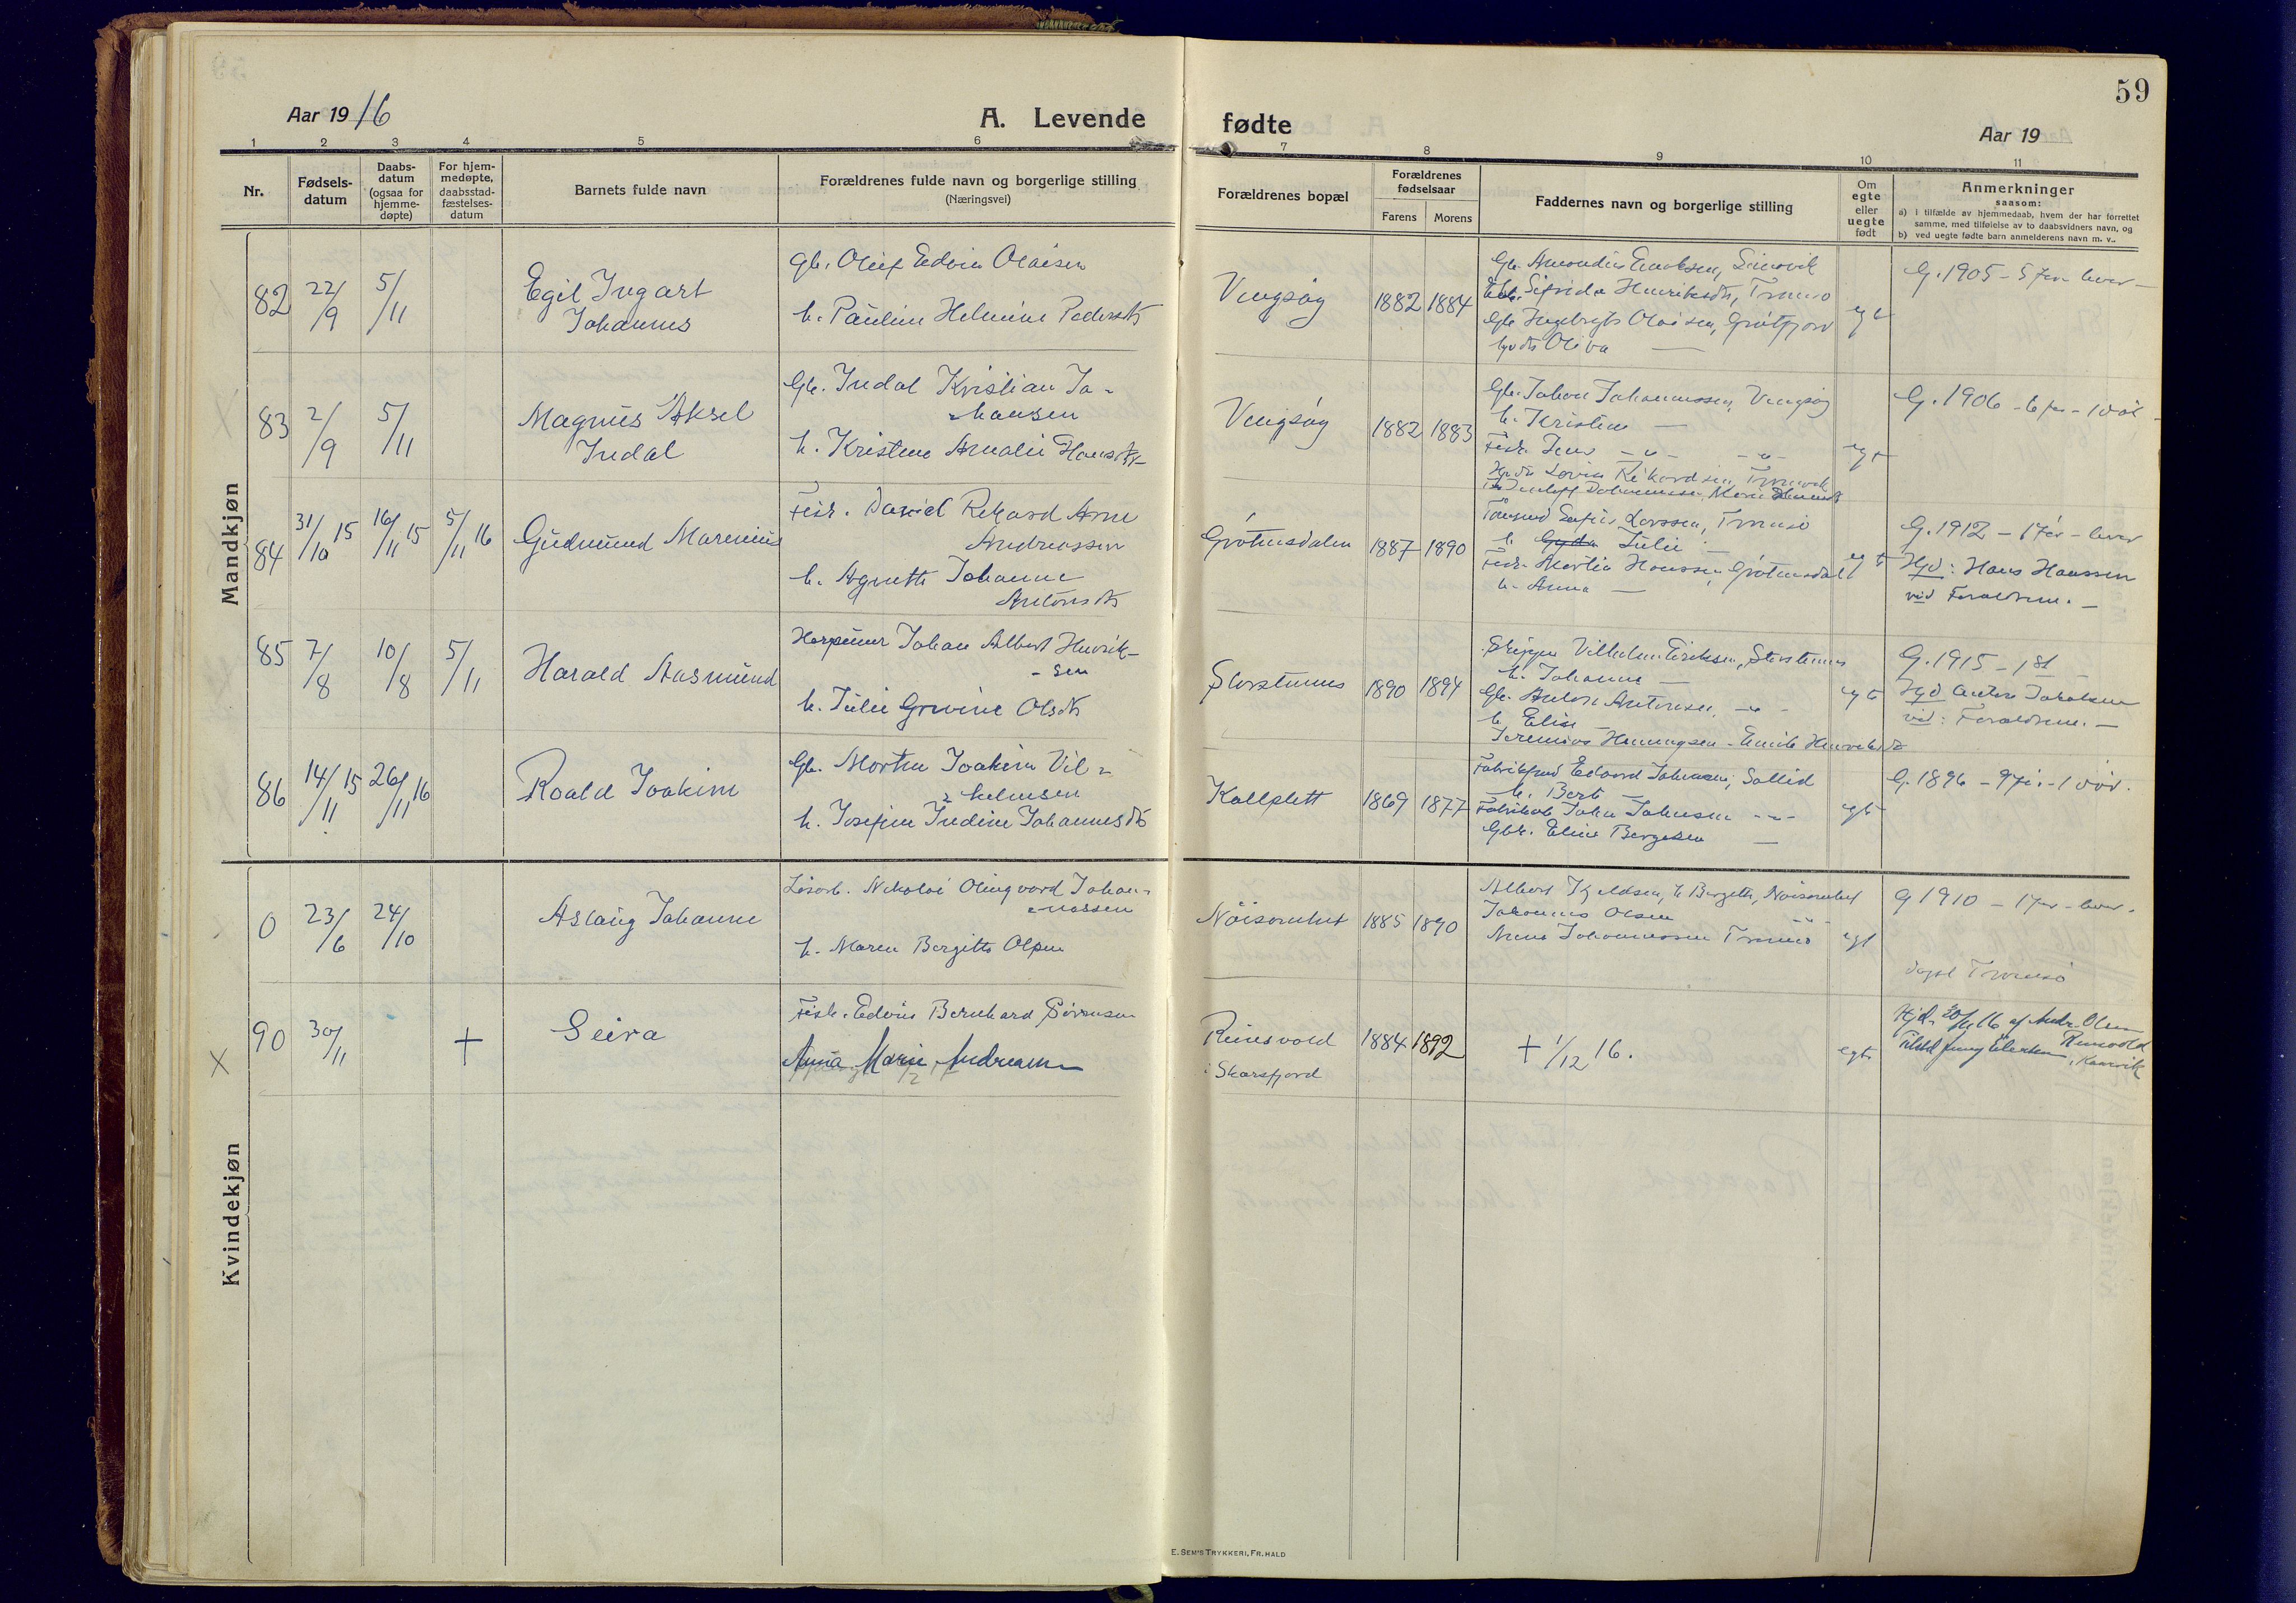 59
Aar 1916
A. Levende fødte
Aar 19
1 2 3 4 5 6 7 8 9 10 11
Nr.
Fødsels-
datum
Daabs-
datum
(ogsaa for
hjemme-
døpte)
For hjem-
medøpte,
daabsstad-
fæstelses-
datum
Barnets fulde navn
Forældrenes fulde navn og borgerlige stilling
(Næringsvei)
Forældrenes bopæl
Forældrenes
fødselsaar
Farens Morens
Faddernes navn og borgerlige stilling
Om
egte
eller
uegte
født
Anmerkninger
saasom:
a) i tilfælde av hjemmedaab, hvem der har forrettet
samme, med tilføielse av to daabsvidners navn, og
b) ved uegte fødte barn anmelderens navn m. v..
Mandkjøn
82 22/9 5/11
Egil Ingart
Johannes
Gb. Oluf Edvin Olaisen
h. Pauline Helmine Pedersdt
Vengsøy 1882 1884
Sifrida Henriksdt, Tromsø
Gb. Ingebrigt Olaisen, Grøtfjord
Oliva —
egt
G. 1905 – 5 før – lever –
83 2/9 5/11
Magnus Aksel
Indal
Gb. Indal Kristian Jo-
hansen
h. Kristine Amalie Hansdt
Vengsøy 1882 1883
Gb. Johan Johannessen, Vengsøy
h. Kristine —
Fisk. Jens – " – – " –
egt
G. 1906 – 6 før – 1 død –
84 31/10 15 16/11 15 5/11 16
Gudmund Marenius
Fisk. Daniel Rikard Arne
Andreassen
h. Agnethe Johanne
Antonsdt
Grøtnesdalen 1887 1890
Larssen, Tromsø
h. Gyda Julie —
Fisk. Martin Hanssen, Grøtnesdal
h. Anna —
egt
G. 1912 – 1 før – lever
Hjd: Hans Hanssen
vid Forældrene. –
85 7/8 10/8 5/11
Harald Aasmund
Harpuner Johan Albert Henrik-
sen
h. Julie Grovine Olsdt
Storstennes 1890 1894
Skipper Vilhelm Eriksen, Storstennes
h. Johanne —
Gb. Anton Antonsen – " –
h. Elise —
Jeremias Henningsen – Emilie Henriksdt
egt
G. 1915 – 1st –
Hjd Anton Jakobsen
vid: Forældrene. –
86 14/11 15 26/11 16
Roald Joakim
Gb. Morten Joakim Vil-
helmsen
h. Josefine Indine Johannesdt
Kallslett 1869 1877
Edvard Johnsen, Sollid
h. Berit —
Fabrikarb. John Johnsen – " –
Gbk. Eline Bergesen —
egt
G. 1896 – 9 før – 1 død.
Kvindekjøn
0 23/6 24/10
Aslaug Johanne
Løsarb. Nikolai Olingvard Johan-
nessen
h. Maren Bergitte Olsen
Nöisomhet 1885 1890
Albert Kjeldsen, h. Bergitte, Nöisomhet
Johannes Olsen – " –
Anna Johannessen Tromsø
egt
G 1910 – 1 før – lever.
døpt Tromsø
X 90 30/11 +
Seira
Fisk. Edvin Bernhard Sørensen
Anna Marie Andreassen
Reinsvold
i Skarsfjord
1884 1892
+ 1/12 16.
egt.
Hjd. 30/11 16 af Andr. Olsen
Reinsvold
, Kaarvik
E. SEM'S TRYKKERI, FR.HALD